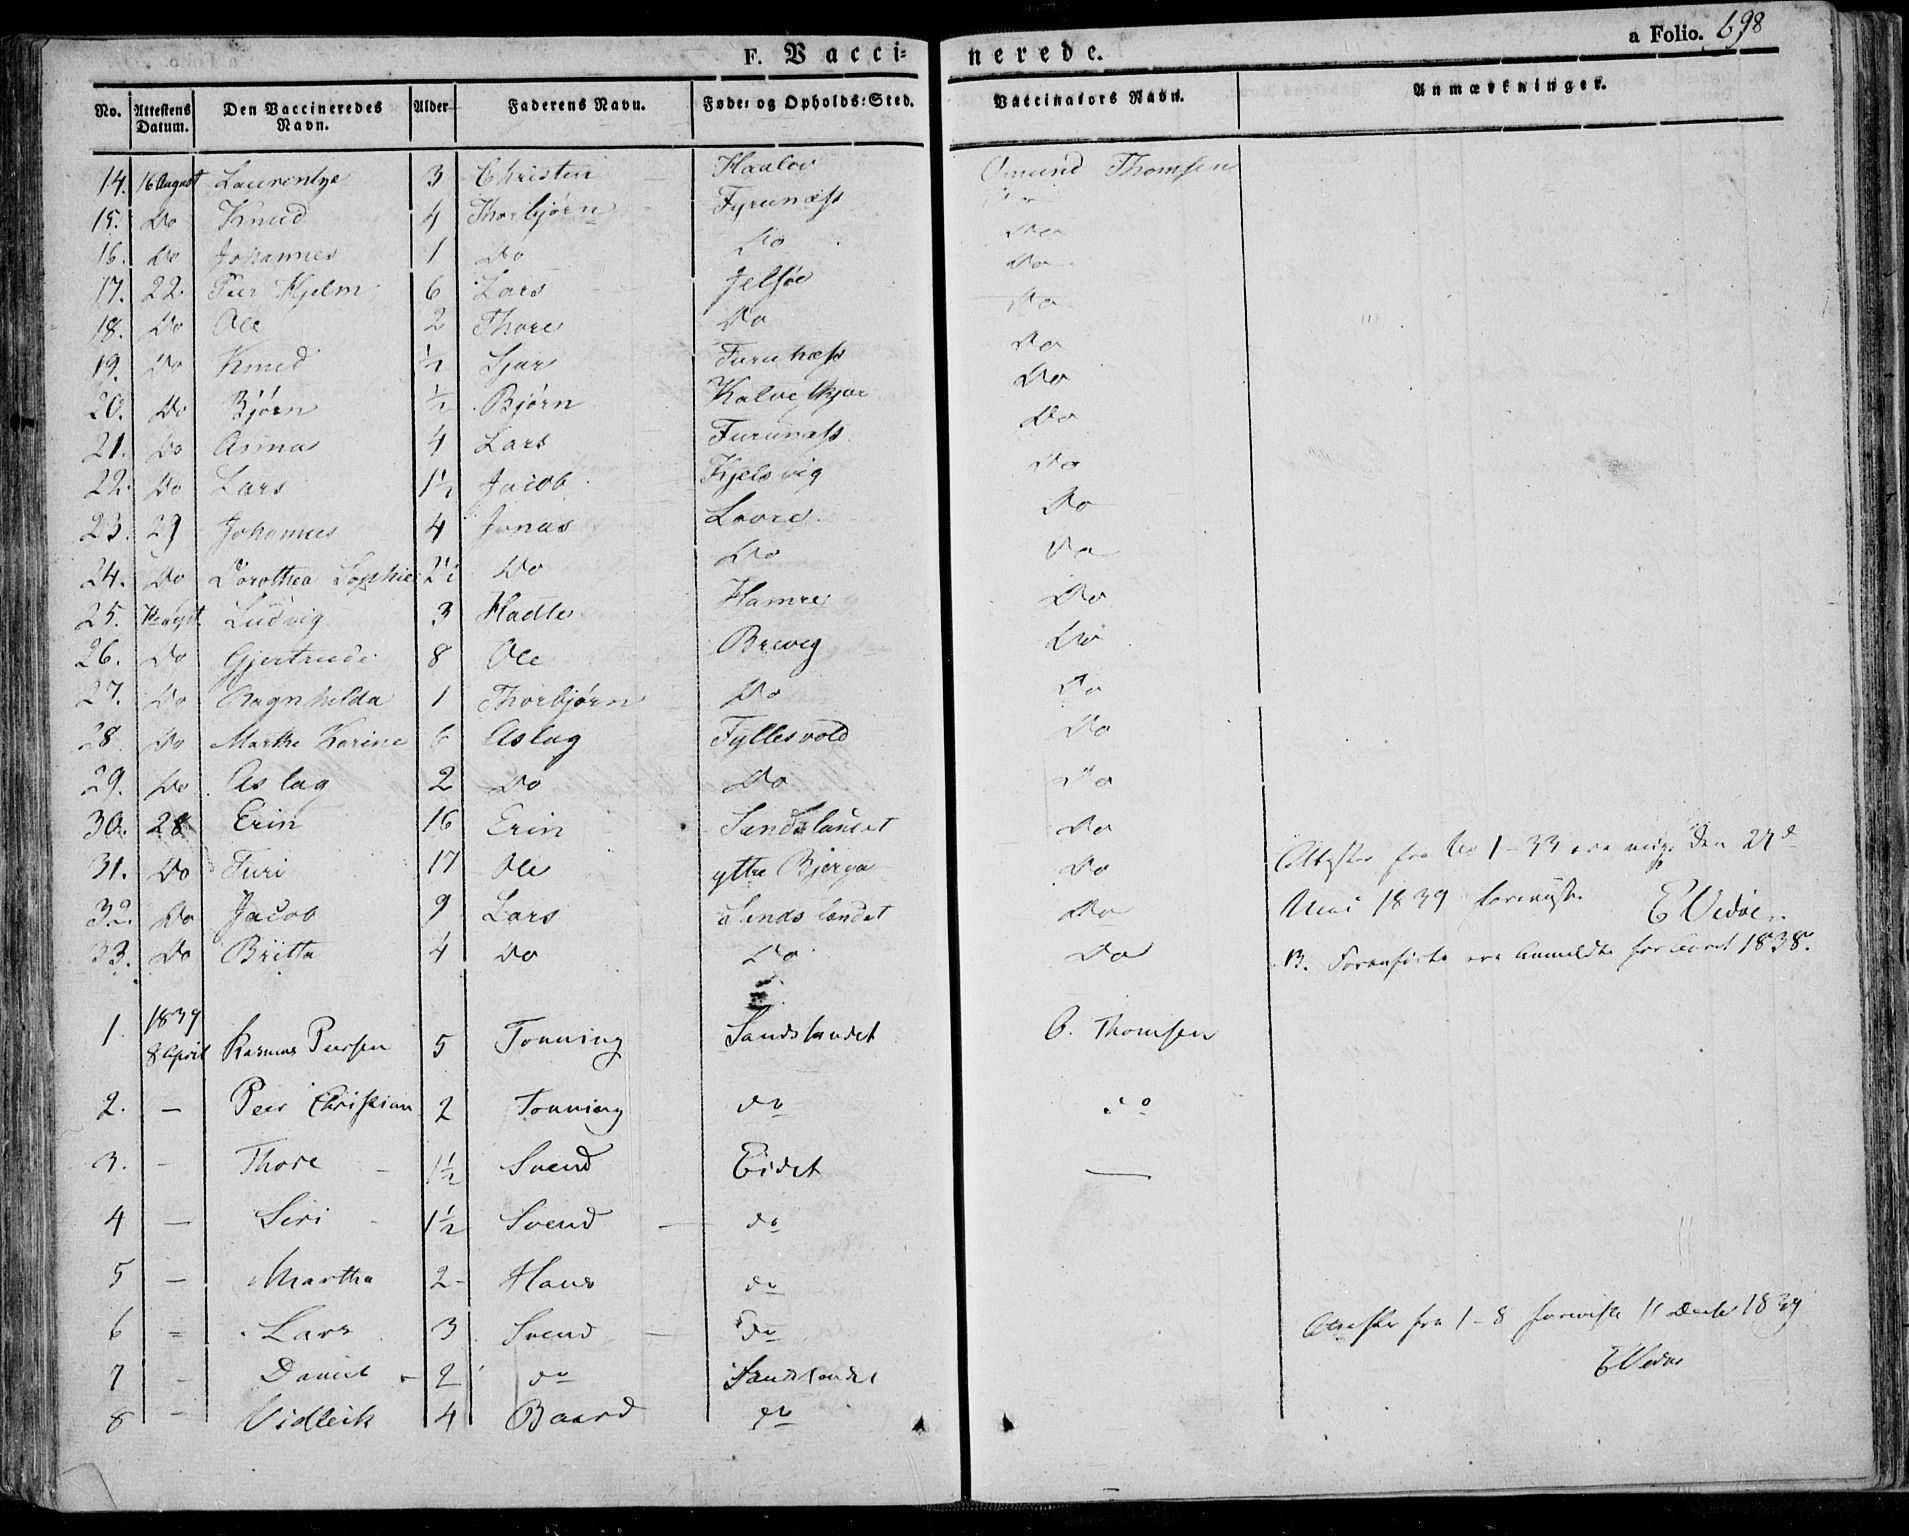 F. Vaccinerede.
a Folio. 698
No. Attestens Datum. Den Vaccineredes Navn. Alder Faderens Navn. Føde: og Opholds:Sted. Vaccinators Navn. Anmærkninger.
14. 16 August Laurentze 3 Christen Haalov Omund Thomsen
15. Do Knud 4 Thorbjørn Fyrunæss
16. Do Johannes 1 Do Do Do
17. 22 Peer Hjelm 6 Lars Jelsøe Do
18. Do Ole 2 Thore Do Do
19. Do Knud ½ Sjur Furunæss Do
20. Do Bjørn ½ Bjørn Do
21. Do Anna 4 Lars Furunæss Do
22. Do Lars 1½ Jacob Kjelsvig Do
23. 29 Johannes 4 Jonas Do
24. Do Dorothea Sophie 2½ Do Do Do
25. Ludvig 3 Hadle Hamre Do
26. Do Gjertrude 8 Ole Brevig Do
27. Do Ragnhilda 1 Thorbjørn Do Do
28 Do Marthe Karine 6 Aslag Fyllesvold Do
29. Do Aslag 2 Do Do Do
30. 28 Erin 16 Erin Sandslandet Do
31. Do Turi 17 Ole ytre Bjerga Do
Attester fra No 1-33 ere mig den 27d
32. Do Jacob 9 Lars Sandslandet Do
Mai 1839 foreviste E Vidøe
33. Do Britta 4 Do Do Do
B. Foranførte ere Anmeldte for Aaret 1838.
1. 1839 8 April Rasmus Peersen 5 Tonning Sandslandet O. Thomsen
2. — Peer Christian 2 Tonning do do
3. - Thore 1½ Svend Eidet —
4 — Siri 1½ Svend do
5 — Martha 2 Hans do
6 = Lars 3 Svend do
Attester fra 1-8 foreviste 11 Decbr 1839
7 - Daniel 2 do Sandslandet
E Vidøe
8 - Vidleik 4 Baard do